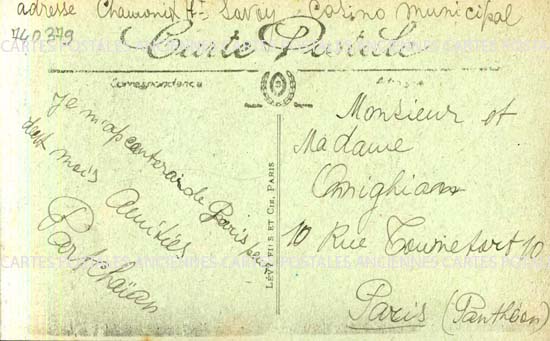 adresse Chamonix Hte Savoy Casino municipal
740379
Carte Postale
CARTES POSTALES ANCIENNES CARTES POSTALES ANCIENNES
Correspondance
Adresse
Je m'absenterai de Paris
deux mois
Amitiés
LÉVY FILS ET CIE, PARIS
Monsieur et
Madame
Omighian
10 Rue Tournefort 10
CARTES POSTALES ANCIENNES CARTES POSTALES ANCIENNES
Paris (Panthéon)